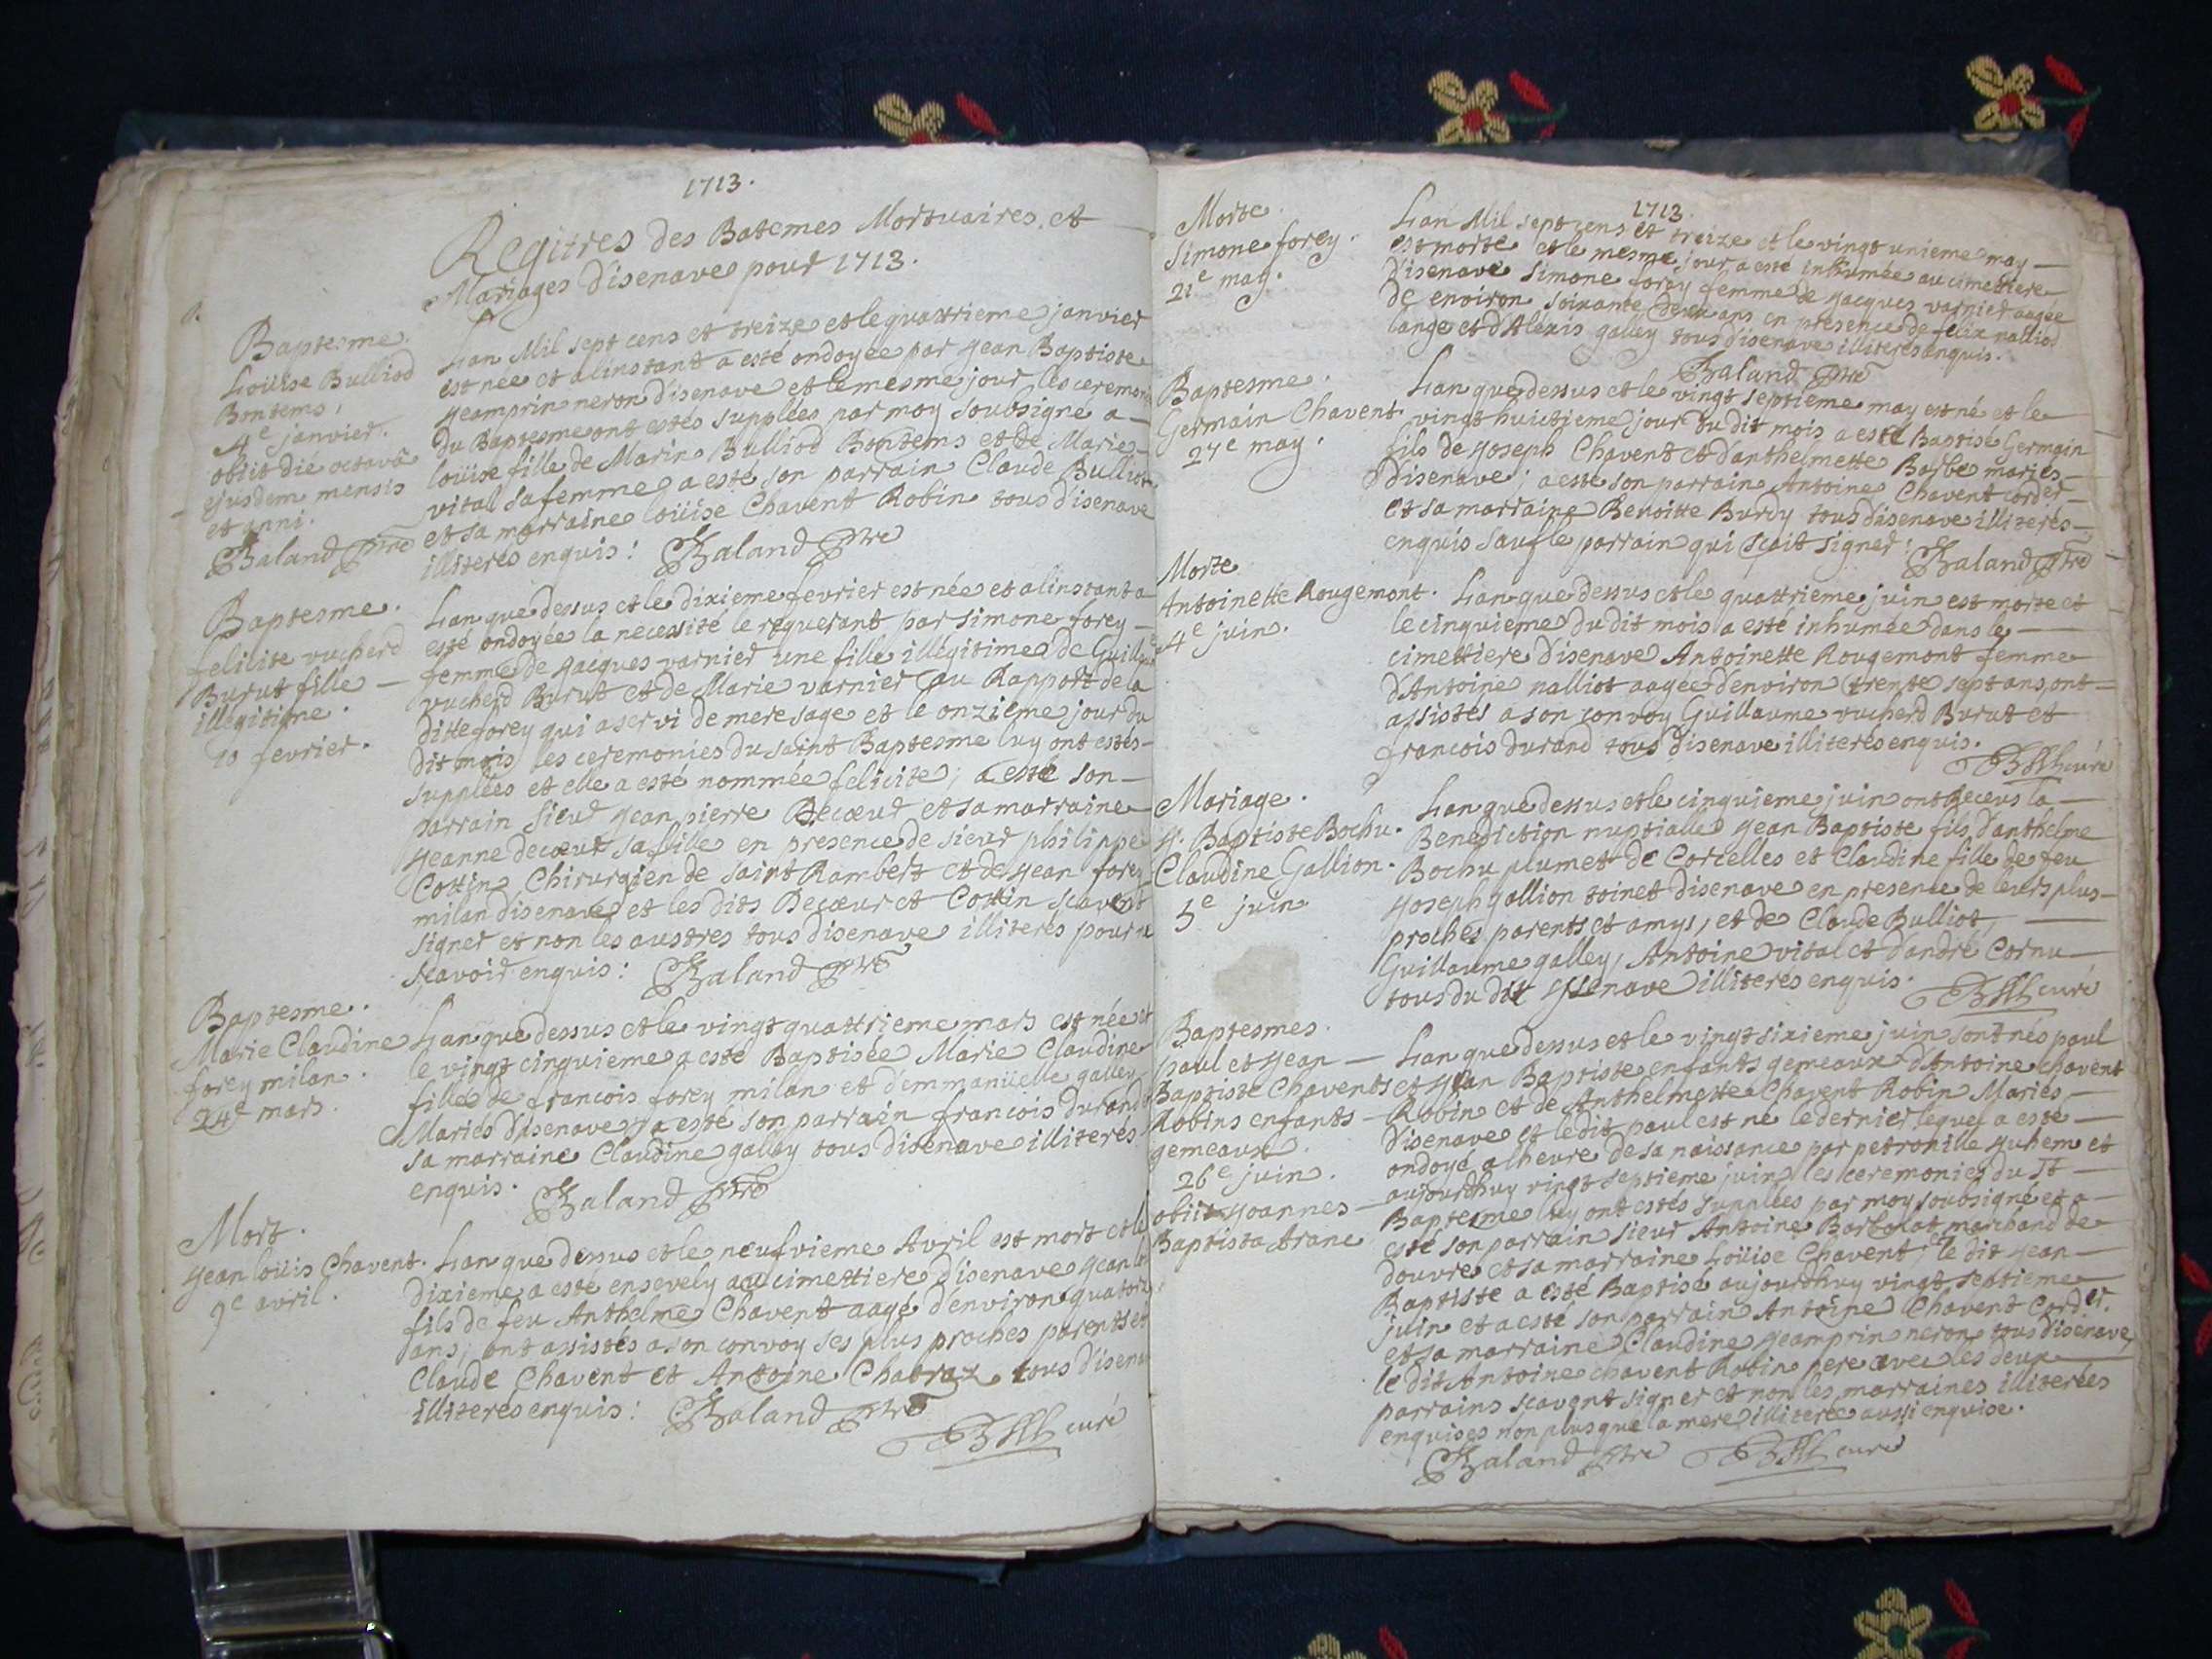 1713.
Regitres des Batemes Mortuaires, et
Mariages d'isenave pour 1713.
Baptesme.
Loüise Bulliod
Bontems,
4e janvier.
obiit die octavâ
ejusdem mensis
et anni.
Baland ptre
Lan Mil sept cens et treize et le quattrieme janvier
est née et a linstant a esté ondoyée par Jean Baptiste
Jeamprin neron d'isenave et le mesme jour les ceremoni
du Baptesme ont estés supplées par moy soubsigné a
loüise fille de Marin Bulliod Bontems et de Marie
vital sa femme, a esté son parrain Claude Bulliot
et sa marraine loüise Chavent Robin tous d'isenave
illiterés enquis: Baland ptre
Baptesme.
felicite vucherd
Burut fille
illegitime.
10 fevrier.
Lan que dessus et le dixieme fevrier est née et a linstant a
esté ondoyée la necessité le requerant par Simone forey
femme de Jacques varnier une fille illégitime de Guillau
vucherd Burut et de Marie varnier au Rapport de la
ditte forey qui a servi de mere sage et le onzieme jour du
dit mois les ceremonies du saint Baptesme luy ont estés
supplées et elle a esté nommée felicite; a esté son
parrain sieur Jean pierre Decœur et sa marraine
Jeanne decœur sa fille en presence de sieur philippe
Cottin Chirurgien de saint Rambert et de Jean forey
milan d'isenave et les dits Decœur et Cottin scavent
signer et non les austres tous d'isenave illiterés pour ne
scavoir enquis: Baland ptre
Baptesme.
Marie Claudine
forey milan.
24e mars.
Lan que dessus et le vingt quattrieme mars est née et
le vingt cinquieme a esté Baptisée Marie Claudine
fille de francois forey milan et d'emmanüelle galley
Mariés d'isenave, a esté son parrain francois durand
sa marraine Claudine galley tous d'isenave illiterés
enquis. Baland ptre
Mort.
Jean loüis Chavent.
9e avril.
Lan que dessus et le neufvieme Avril est mort et le
dixieme a esté ensevely au cimettiere d'isenave Jean
fils de feu Anthelme Chavent aagé d'environ quatorz
ans, ont assistés a son convoy ses plus proches parents et
Claude Chavent et Antoine Chatraz tous d'isena
illiterés enquis: Baland ptre
curé
1713.
Morte.
Simone forey.
21e may.
Lan Mil sept cens et treize et le vingt unieme may
est morte et le mesme jour a esté inhumée au cimettiere
d'isenave Simone forey femme de Jacques varnier aagée
de environ soixante deux ans en presence de felix nalliod
lange et d'Alexis galley tous d'isenave illiterés enquis.
Baland ptre
Baptesme.
Germain Chavent.
27e may.
Lan que dessus et le vingt septieme may est né et le
vingt huictieme jour du dit mois a esté Baptisé Germain
fils de Joseph Chavent et d'anthelmette Barbe mariés
d'isenave; a esté son parrain Antoine Chavent corder
et sa marraine Benoitte Burdy tous d'isenave illiterés
enquis sauf le parrain qui sçait signer: Baland ptre
Morte
Antoinette Rougemont.
4e juin.
Lan que dessus et le quattrieme juin est morte et
le cinquieme du dit mois a esté inhumée dans le
cimettiere d'isenave Antoinette Rougemont femme
d'Antoine nalliot aagée d'environ trente sept ans, ont
assistés a son convoy Guillaume vucherd Burut et
francois durand tous d'isenave illiterés enquis.
curé
Mariage.
J. Baptiste Bochu.
Claudine Gallion.
5e juin
Lan que dessus et le cinquieme juin ont receus la
Benediction nuptialle Jean Baptiste fils d'anthelme
Bochu plumet de Corcelles et Claudine fille de feu
Joseph gallion toinet d'isenave en presence de leurs plus
proches parents et amys, et de Claude Bulliot,
Guillaume galley, Antoine vital et d'andré Cornu
tous du dit Isenave illiterés enquis.
curé
Baptesmes.
paul et Jean
Baptiste Chavents
Robins enfants
gemeaux.
26e juin.
obiit Joannes
Baptista
Lan que dessus et le vingt sixieme juin sont nés paul
et Jean Baptiste enfants gemeaux d'Antoine chavent
Robin et de Anthelmette Chavent Robin Mariés
d'isenave et le dit paul est né le dernier lequel a esté
ondoyé a lheure de sa naissance par petronille Juhem et
aujourdhuy vingt septieme juin les ceremonies du St
Baptesme luy ont estés supplées par moy soubsigné et a
esté son parrain sieur Antoine marchand de
douvre et sa marraine Loüise Chavent; le dit Jean
Baptiste a esté Baptisé aujourdhuy vingt septieme
juin et a esté son parrain Antoine Chavent Corder.
et sa marraine Claudine Jeamprin neron tous d'isenave,
le dit Antoine chavent Robin pere avec les deux
parrains scavent signer et non les marraines illiterées
enquises non plus que la mere illiterée aussi enquise.
Baland ptre curé